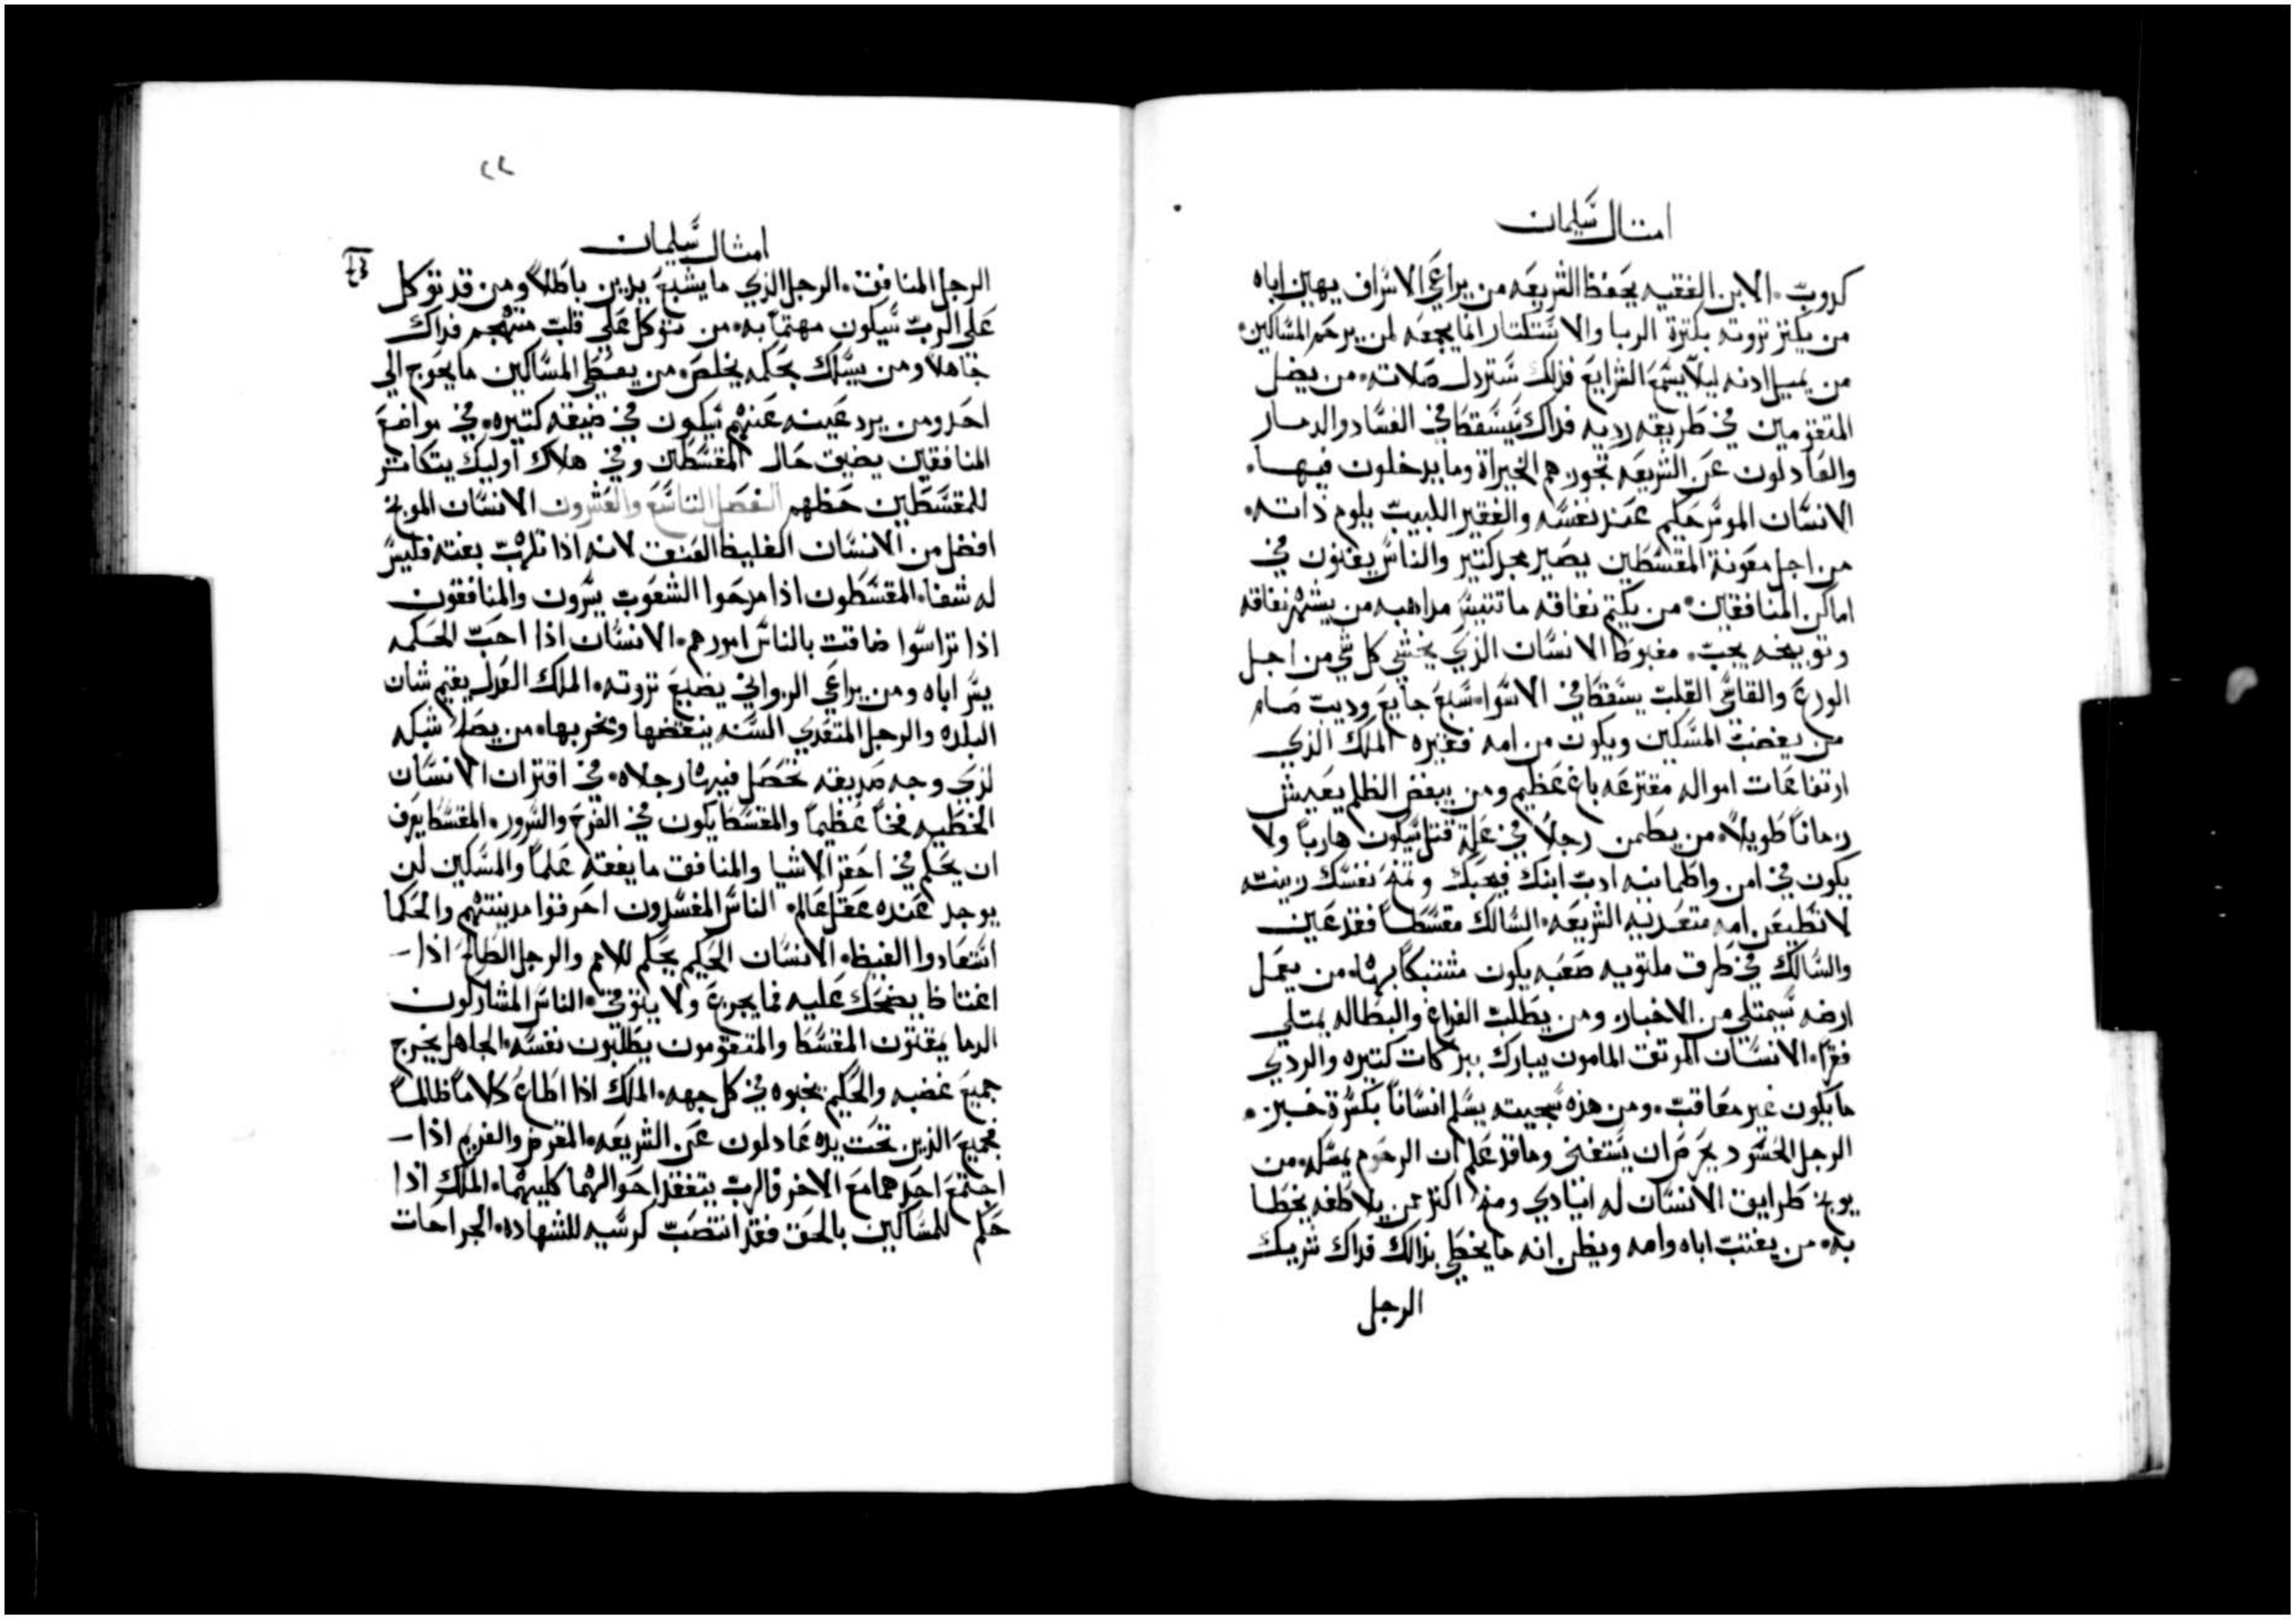 امتال سليمان
كدوبّ. الابن الفقيه يحفظ الشريعه من يراعي الاسراف يهين اباه
من يكنز تروته بكترة الربا والاستكتار انما يجمعه لمن يرحم المساكين.
من يميل ادنه ليلا يسمع الشرايع فذلك ستردل صلاته. من يضل
المتقومين في طريقه رديه فداك سيسقط في الفساد والدمار
والعادلون عن الشريعه تجوزهم الخيراة وما يدخلون فيها.
الانسان الموسر حكيم عند نفسه والفقير اللبيب يلوم ذاته.
من اجل معونة المقسطين يصير مجد كتير والناس يفنون في
اماكن المنافقين. من يكتم نفاقه ما تتيسر مداهبه من يشهر نفاقه
وتوبيخه يحب. مغبوط الانسان الذي يخشي كل شي من اجل
الورع والقاسي القلب يسقط في الاسوا. سبع جايع وديب ضام
من يغضب المسكين ويكون من امه فقيره الملك الذي
ارتفاعات امواله مقترعه باغ عظيم ومن يبغض الظلم يعيش
زماناً طويلاً. من يضمن رجلاً في علة قتل سيكون هارباً ولا
يكون في امن واطمانيه ادب ابنك فيحبك ويمنح نفسك زينته
لا تطيعن امه متعديه الشريعه. السالك مقسطاً فقد عين
والسالك في طرق ملتويه صعبه يكون مشتبكاً بها. من يعمل
ارضه سيمتلي من الاخباز ومن يطلب الفراغ والبطاله يمتلي
فقراً. الانسان الموتق المامون يبارك ببركات كتيره والردي
ما يكون غير معاقب. ومن هذه سجيته يسلم انساناً بكسرة خبز.
الرجل الحسود يحرص ان يستغني وما قد علم ان الرحوم يمسكه. من
يوبخ طرايق الانسان له ايادي ومنه اكتر من يلاطفه بخطا
به. من يغتب اباه وامه ويظن انه ما يخطي بذالك فداك شريك
الرجل
٢٢
امثال سليمان
الرجل المنافق. الرجل الذي ما يشبع يدين باطلاً ومن قد توكل
علي الرب سيكون مهتماً به. من توكل علي قلب متهجم فداك
جاهلاً ومن يسلك بحكمه يخلص. من يعطي المساكين ما يحوج الي
احد ومن يرد عينه عنهم سيكون في ضيقه كتيره. في مواضع
المنافقين يضيق حال المقسطين وفي هلاك اوليك يتكاتر
للمقسطين حظهم الفصل التاسع والعشرون الانسان الموبخ
افضل من الانسان الغليظ العنق لانه اذا تلهب بغته فليس
له شفا. المقسطون اذا مدحوا الشعوب يسرون والمنافقون
اذا تراسوا ضاقت بالناس امورهم. الانسان اذا احب الحكمه
يسر اباه ومن يراعي الزواني يضيع تروته. الملك العدل يقيم شان
البلده والرجل المتعدي السنه ينقضها ويخربها. من يصلا شبكه
لذي وجه صديقه تحصل فيها رجلاه. في اقتران الانسان
الخطيه فخاً عظيماً والمقسط يكون في الفرح والسرور. المقسط يعرف
ان يحكم في احقر الاشيا والمنافق ما يفقه علماً والمسكين لن
يوجد عنده عقل عالم. الناس المفسدون احرقوا مدينتهم والحكما
استعادوا الغيظ. الانسان الحكيم يحكم للامم والرجل الطالح اذا
اغتاظ يضحك عليه فما يجزع ولا يتوقي. الناس المشاركون
الدما يمقتون المقسط والمتقومون يطلبون نفسه. الجاهل يخرج
جميع غضبه والحكيم يخبوه في كل جهه. الملك اذا اطاع كلاماً ظالماً
فجميع الذين تحت يده عادلون عن الشريعه. المقرض والغريم اذا
اجتمع احدهما مع الاخر فالرب يتفقد احوالهما كليهما. الملك اذا
حكم للمساكين بالحق فقد انتصب كرسيه للشهاده. الجراحات